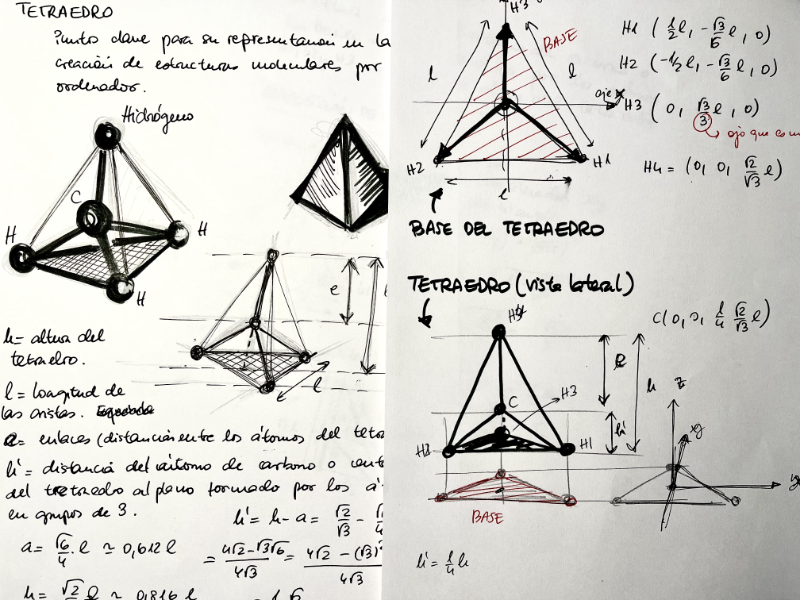 TETRAEDRO
Punto clave para su representación en la
creación de estructuras moleculares por
ordenador.
Hidrógeno
C
H
H
H
e
l
h = altura del
tetraedro.
l = longitud de
las aristas.
a = enlaces (distancia entre los átomos del
h' = distancia del átomo de carbono o
del tetraedro al plano formado por los
en grupos de 3.
h' = h - a = √2/√3 -
a = √6/4 · l ≃ 0,612 l
= 4√2-√3√6/4√3 = 4√2 - (√3)/4√3
h = √2 l ≃ 0,816 l
H3
BASE
l
l
eje X
H2
H1
l
BASE DEL TETRAEDRO
H1 (1/2 l, -√3/6 l, 0)
H2 (-1/2 l, -√3/6 l, 0)
H3 (0, √3/3 l, 0)
ojo que
H4 = (0, 0, √2/√3 l)
TETRAEDRO (vista lateral)
C (0, 0, 1/4 √2/√3 l)
C
H3
h
h'
H1
z
y
BASE
h' = 1/4 h